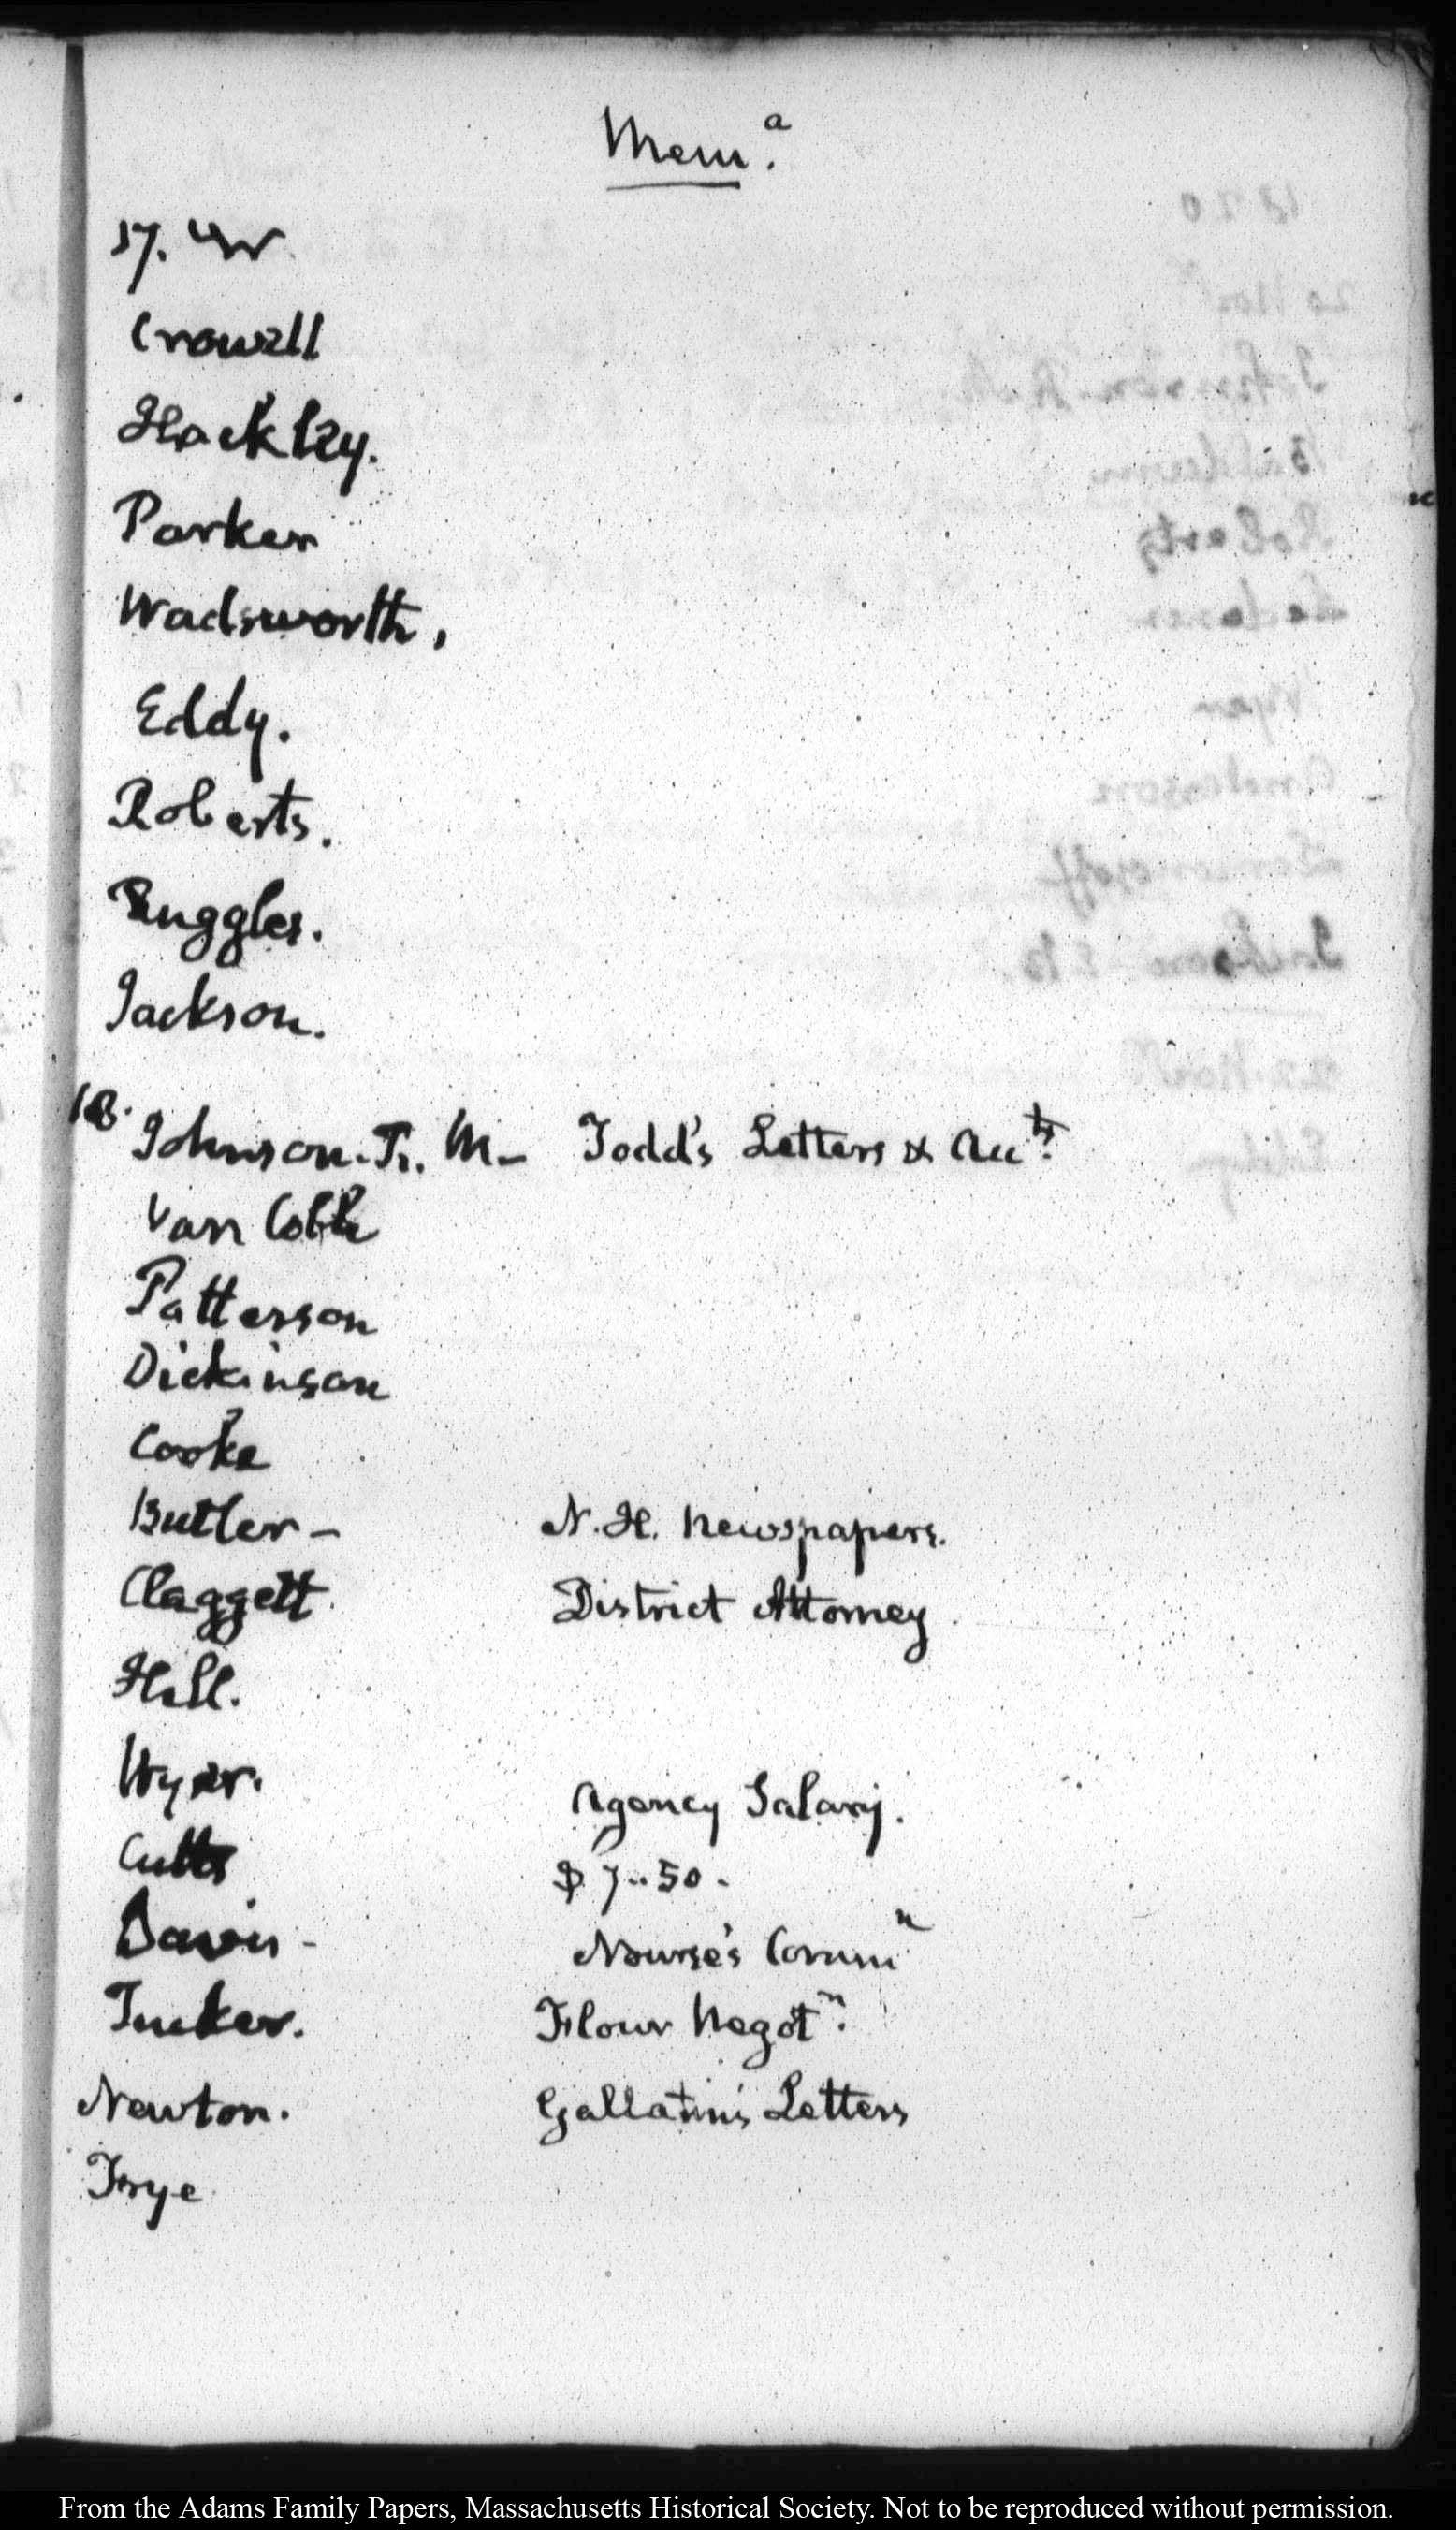 Mem.ª
17. W
Crowell
Hackley.
Parker
Wadsworth,
Eddy.
Roberts.
Ruggles.
Jackson.
18. Johnson. Tr. M— Todd's Letters & Accts.
Van Cobb
Patterson
Dickinson
Cooke
Butler — N. H. Newspapers.
Claggett. District Attorney.
Hall.
Wyer. Agency Salary.
Cutts $7..50.
Davis — Nourse's Commn
Tucker. Flour Negotn.
Newton. Gallatin's Letters
Frye
From the Adams Family Papers, Massachusetts Historical Society. Not to be reproduced without permission.